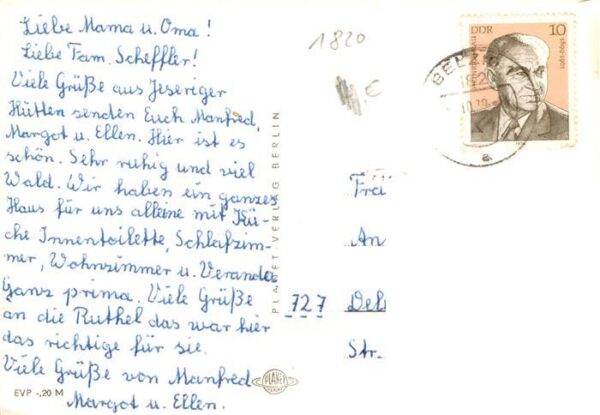 Liebe Mama u. Oma!
Liebe Fam. Scheffler!
Viele Grüße aus Jeseriger
Hütten senden Euch Manfred,
Margot u. Ellen. Hier ist es
schön. Sehr ruhig und viel
Wald. Wir haben ein ganzes
Haus für uns alleine mit Kü-
che Innentoilette, Schlafzim-
mer, Wohnzimmer u. Veranda
Ganz prima. Viele Grüße
an die Ruthel das war hier
das richtige für sie.
Viele Grüße von Manfred
Margot u. Ellen.
EVP -,20 M
PLANET
PLANET-VERLAG BERLIN
1820
€
DDR 10
1899-1971
BELZIG
182
a
Fra
An
727 Del
Str.